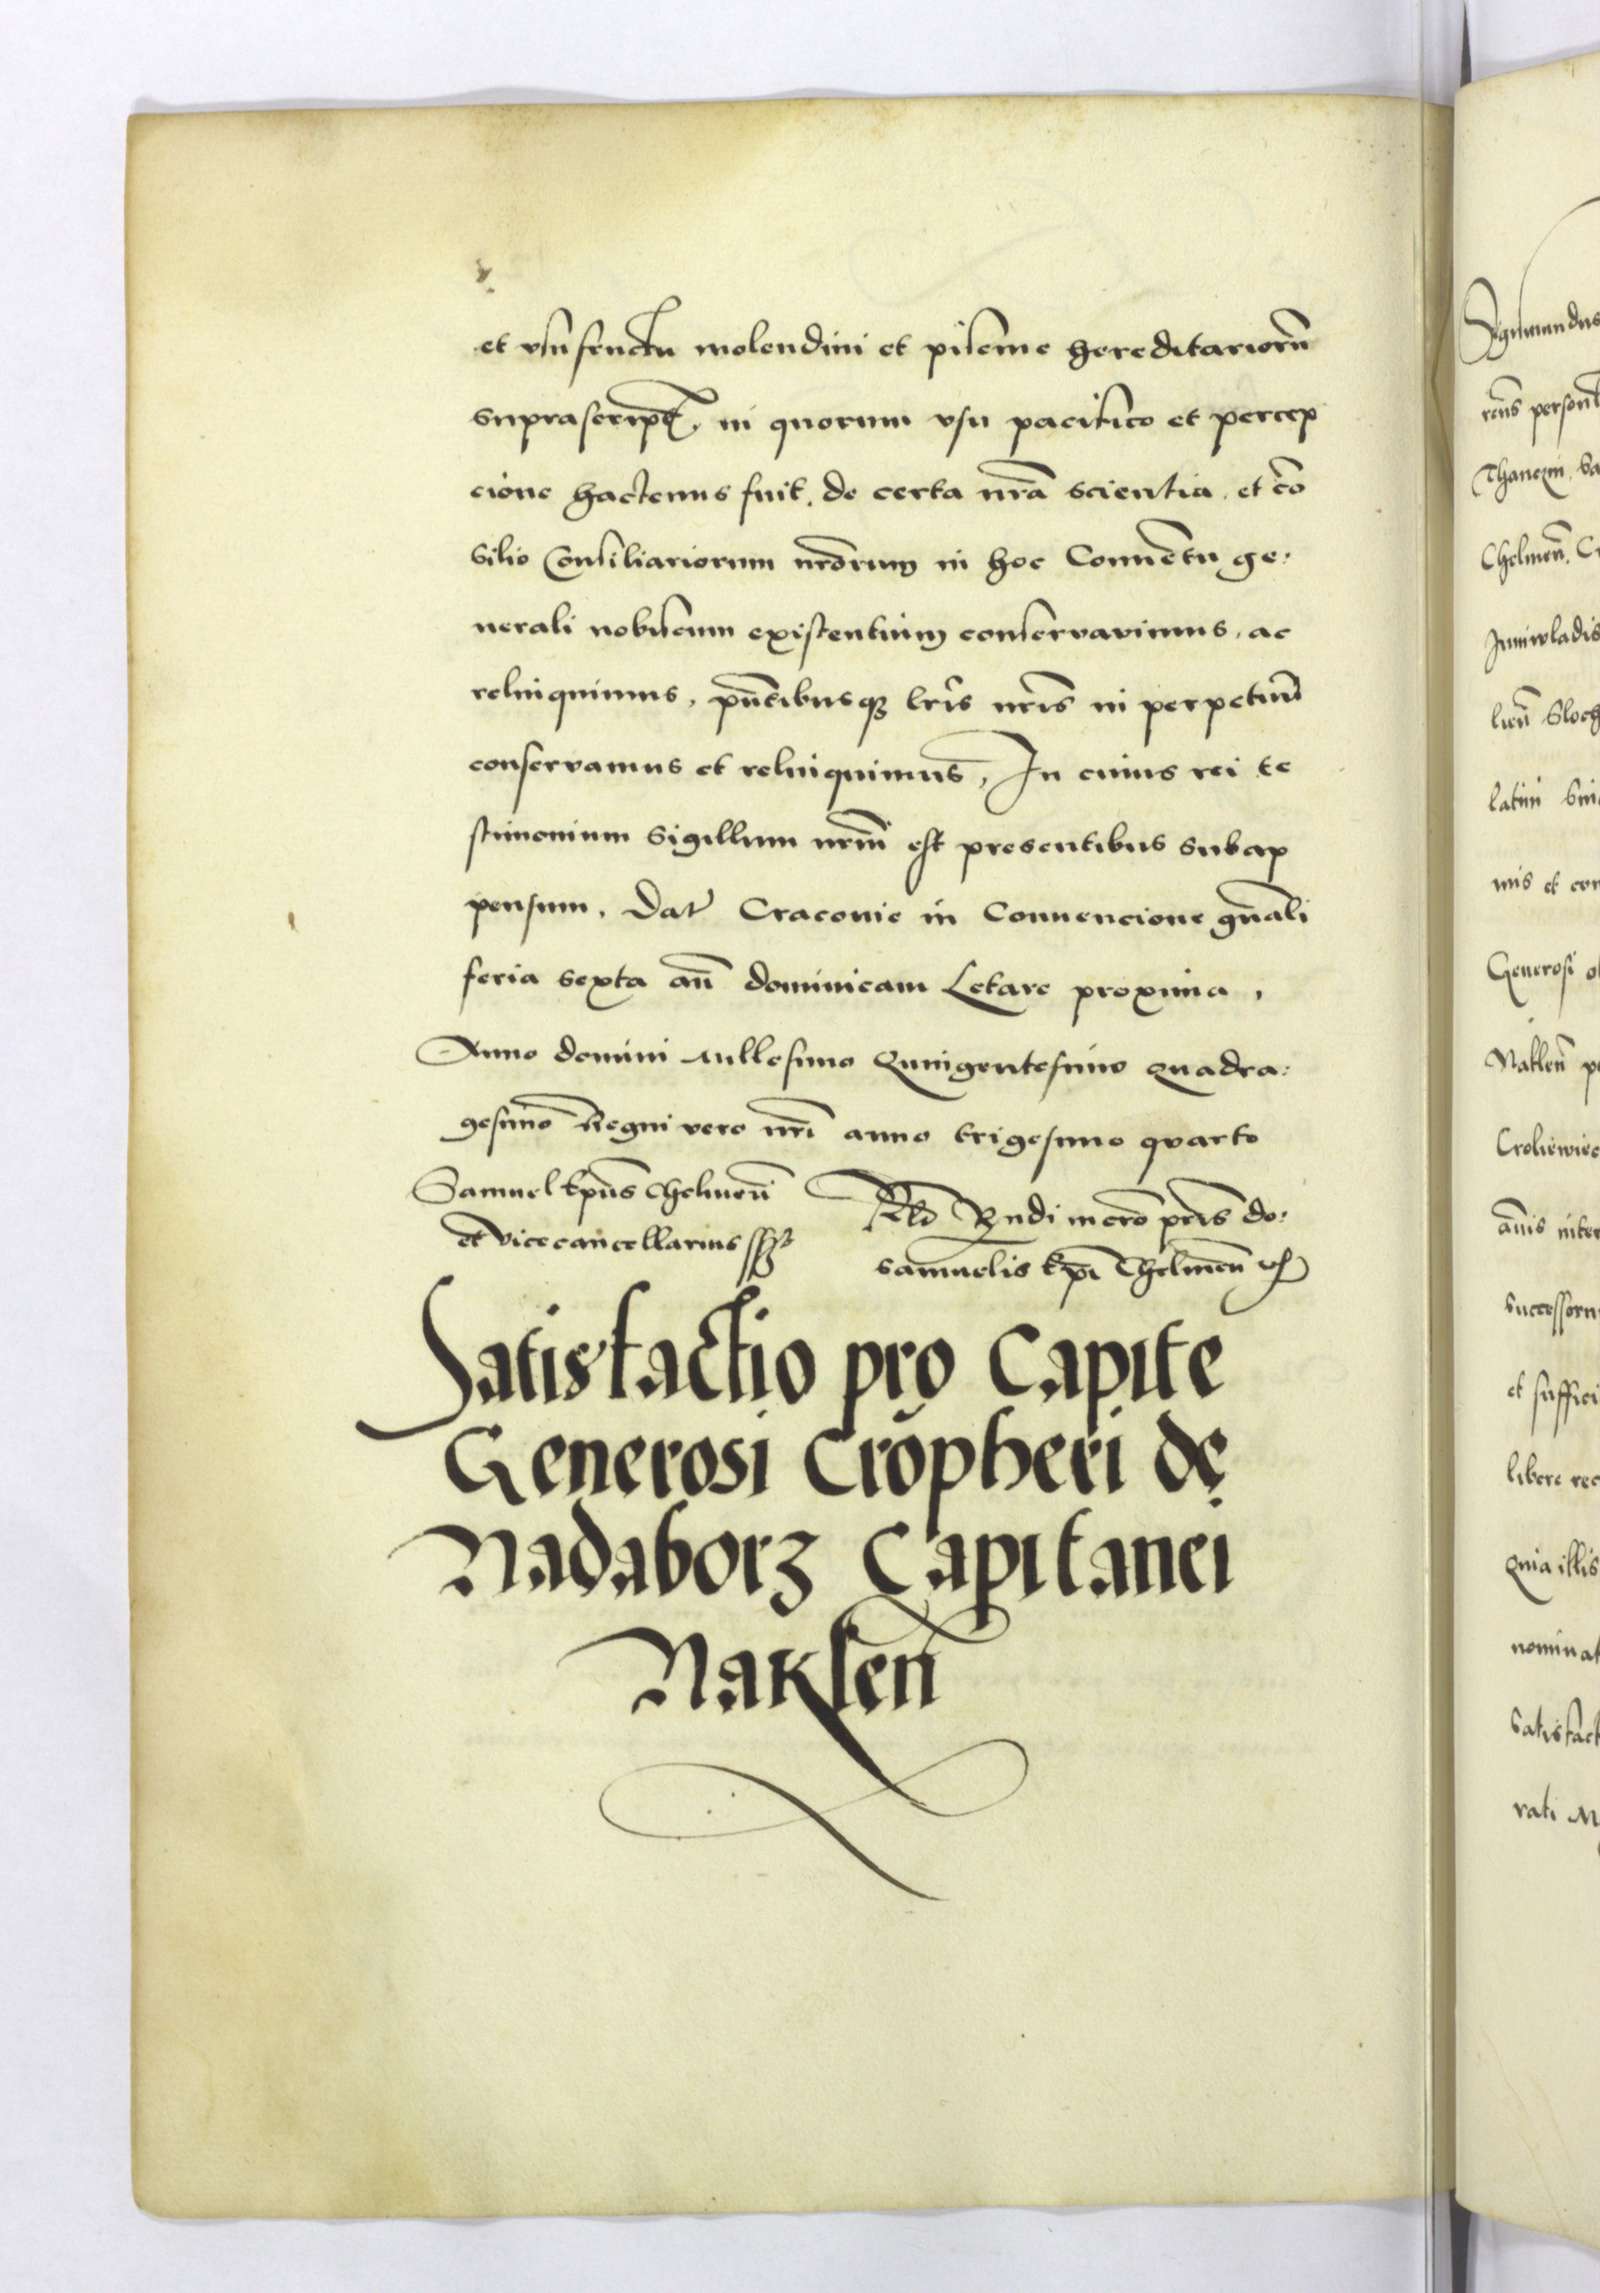 et vsufructu molendini et piscine hereditariorū
suprascript, in quorum vsu pacifico et percep
cione hactenus fuit, de certa nrā scientia, et cō
silio Consiliariorum nrōrum in hoc Conuētu ge:
nerali nobiscum existentium conservavimus, ac
relinquimus, pn̄tibusqȝ lrīs nrīs in perpetuū
conservamus et relinquimus, In cuius rei te
stimonium Sigillum nrm̄ est presentibus subap
pensum, Dat Cracovie in Convencione gn̄ali
feria sexta an̄ dominicam Letare proxima,
Anno domini Millesimo Quingentesimo Quadra:
gesimo Regni vero nrī anno trigesimo quarto
Samuel Ep̄us Chelmen̄
et Vicecancellarius sst
Rlō Rndi in crō pr̄is do:
Samuelis Ep̄i Chelmen̄
Satisfactio pro Capite
Generosi Crōpheri de
Nadaborz Capitanei
Naklen̄
Sigismundus
Thanczin, Ca
Chelmen̄, C
Juniwladis
lien̄ Sloch
latin
mis et con
Generosi
Naklen̄ p
Croliewiec
ān̄is inter
successoru
et suffici
libere rec
Quia illis
nominat
satisfact
rati M